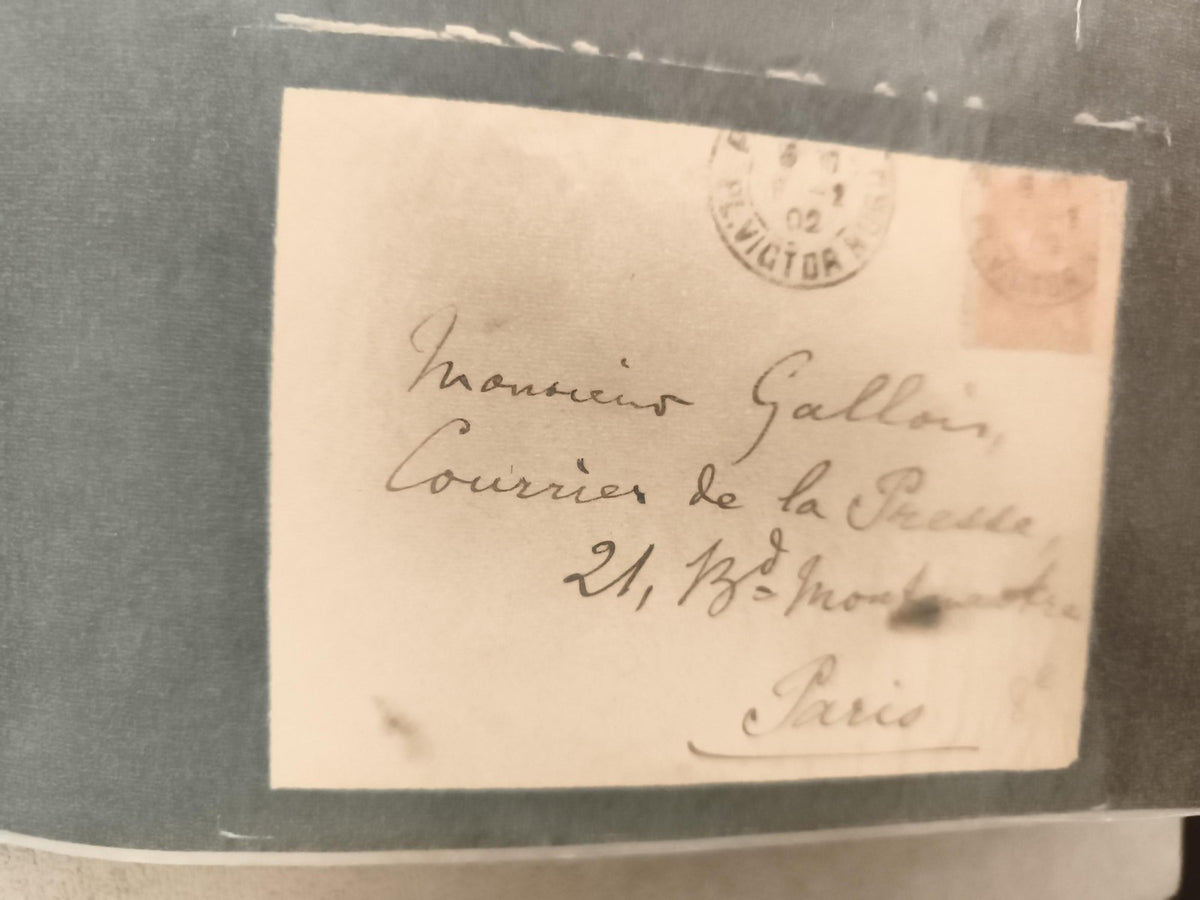 PL. VICTOR HUGO
02
Monsieur Gallois,
Courrier de la Presse,
21, Bd Montmartre
Paris